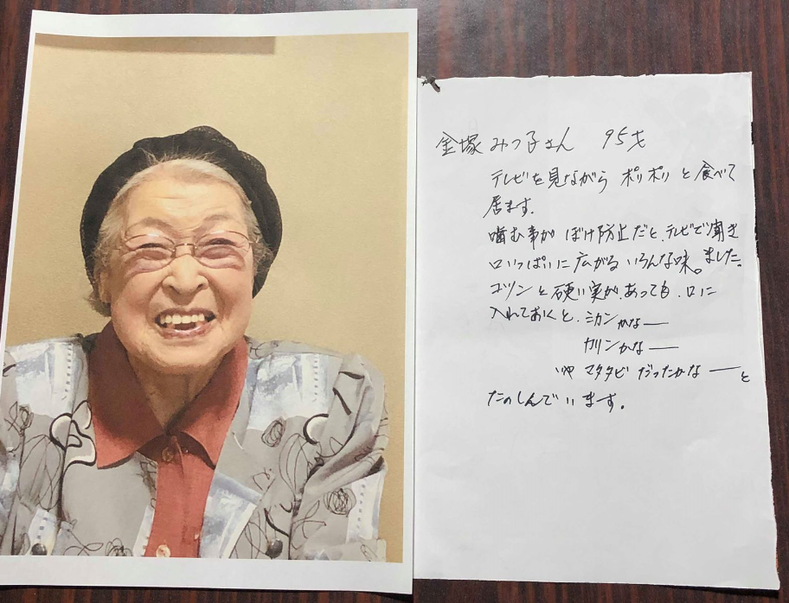 金塚みつ子さん 95才
テレビを見ながら ポリポリ と食べて
居ます.
噛む事が ぼけ防止だと、テレビで聞き
ました。
口いっぱいに広がる いろんな味。
コツンと硬い実が、あっても、口に
入れておくと、ミカンかなー
カリンかなー
いや マタタビ だったかなーと
たのしんでいます。